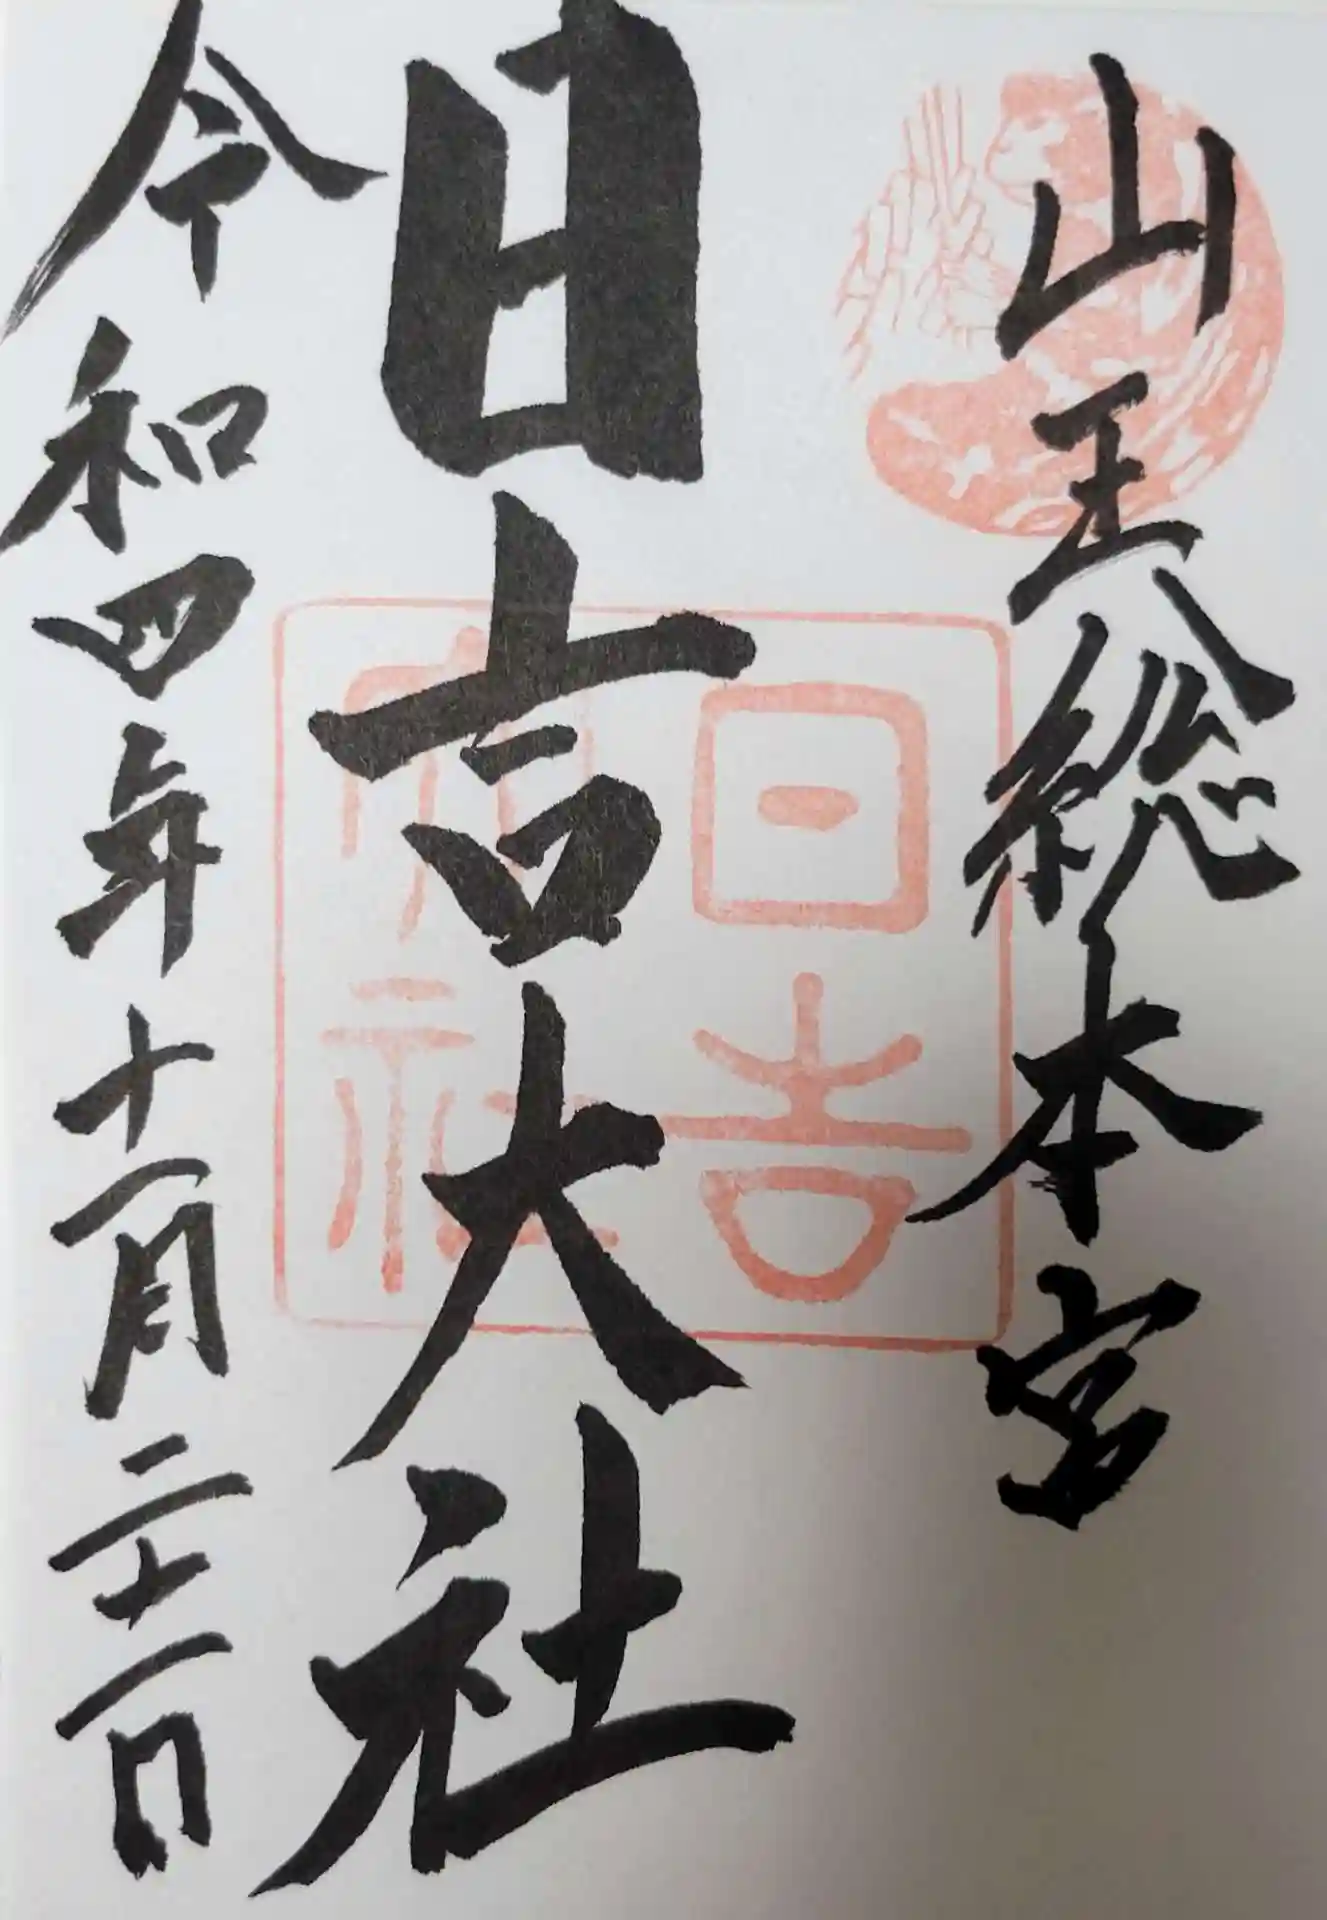 山王総本宮
日吉大社
日吉
大社
令和四年十一月二十一日